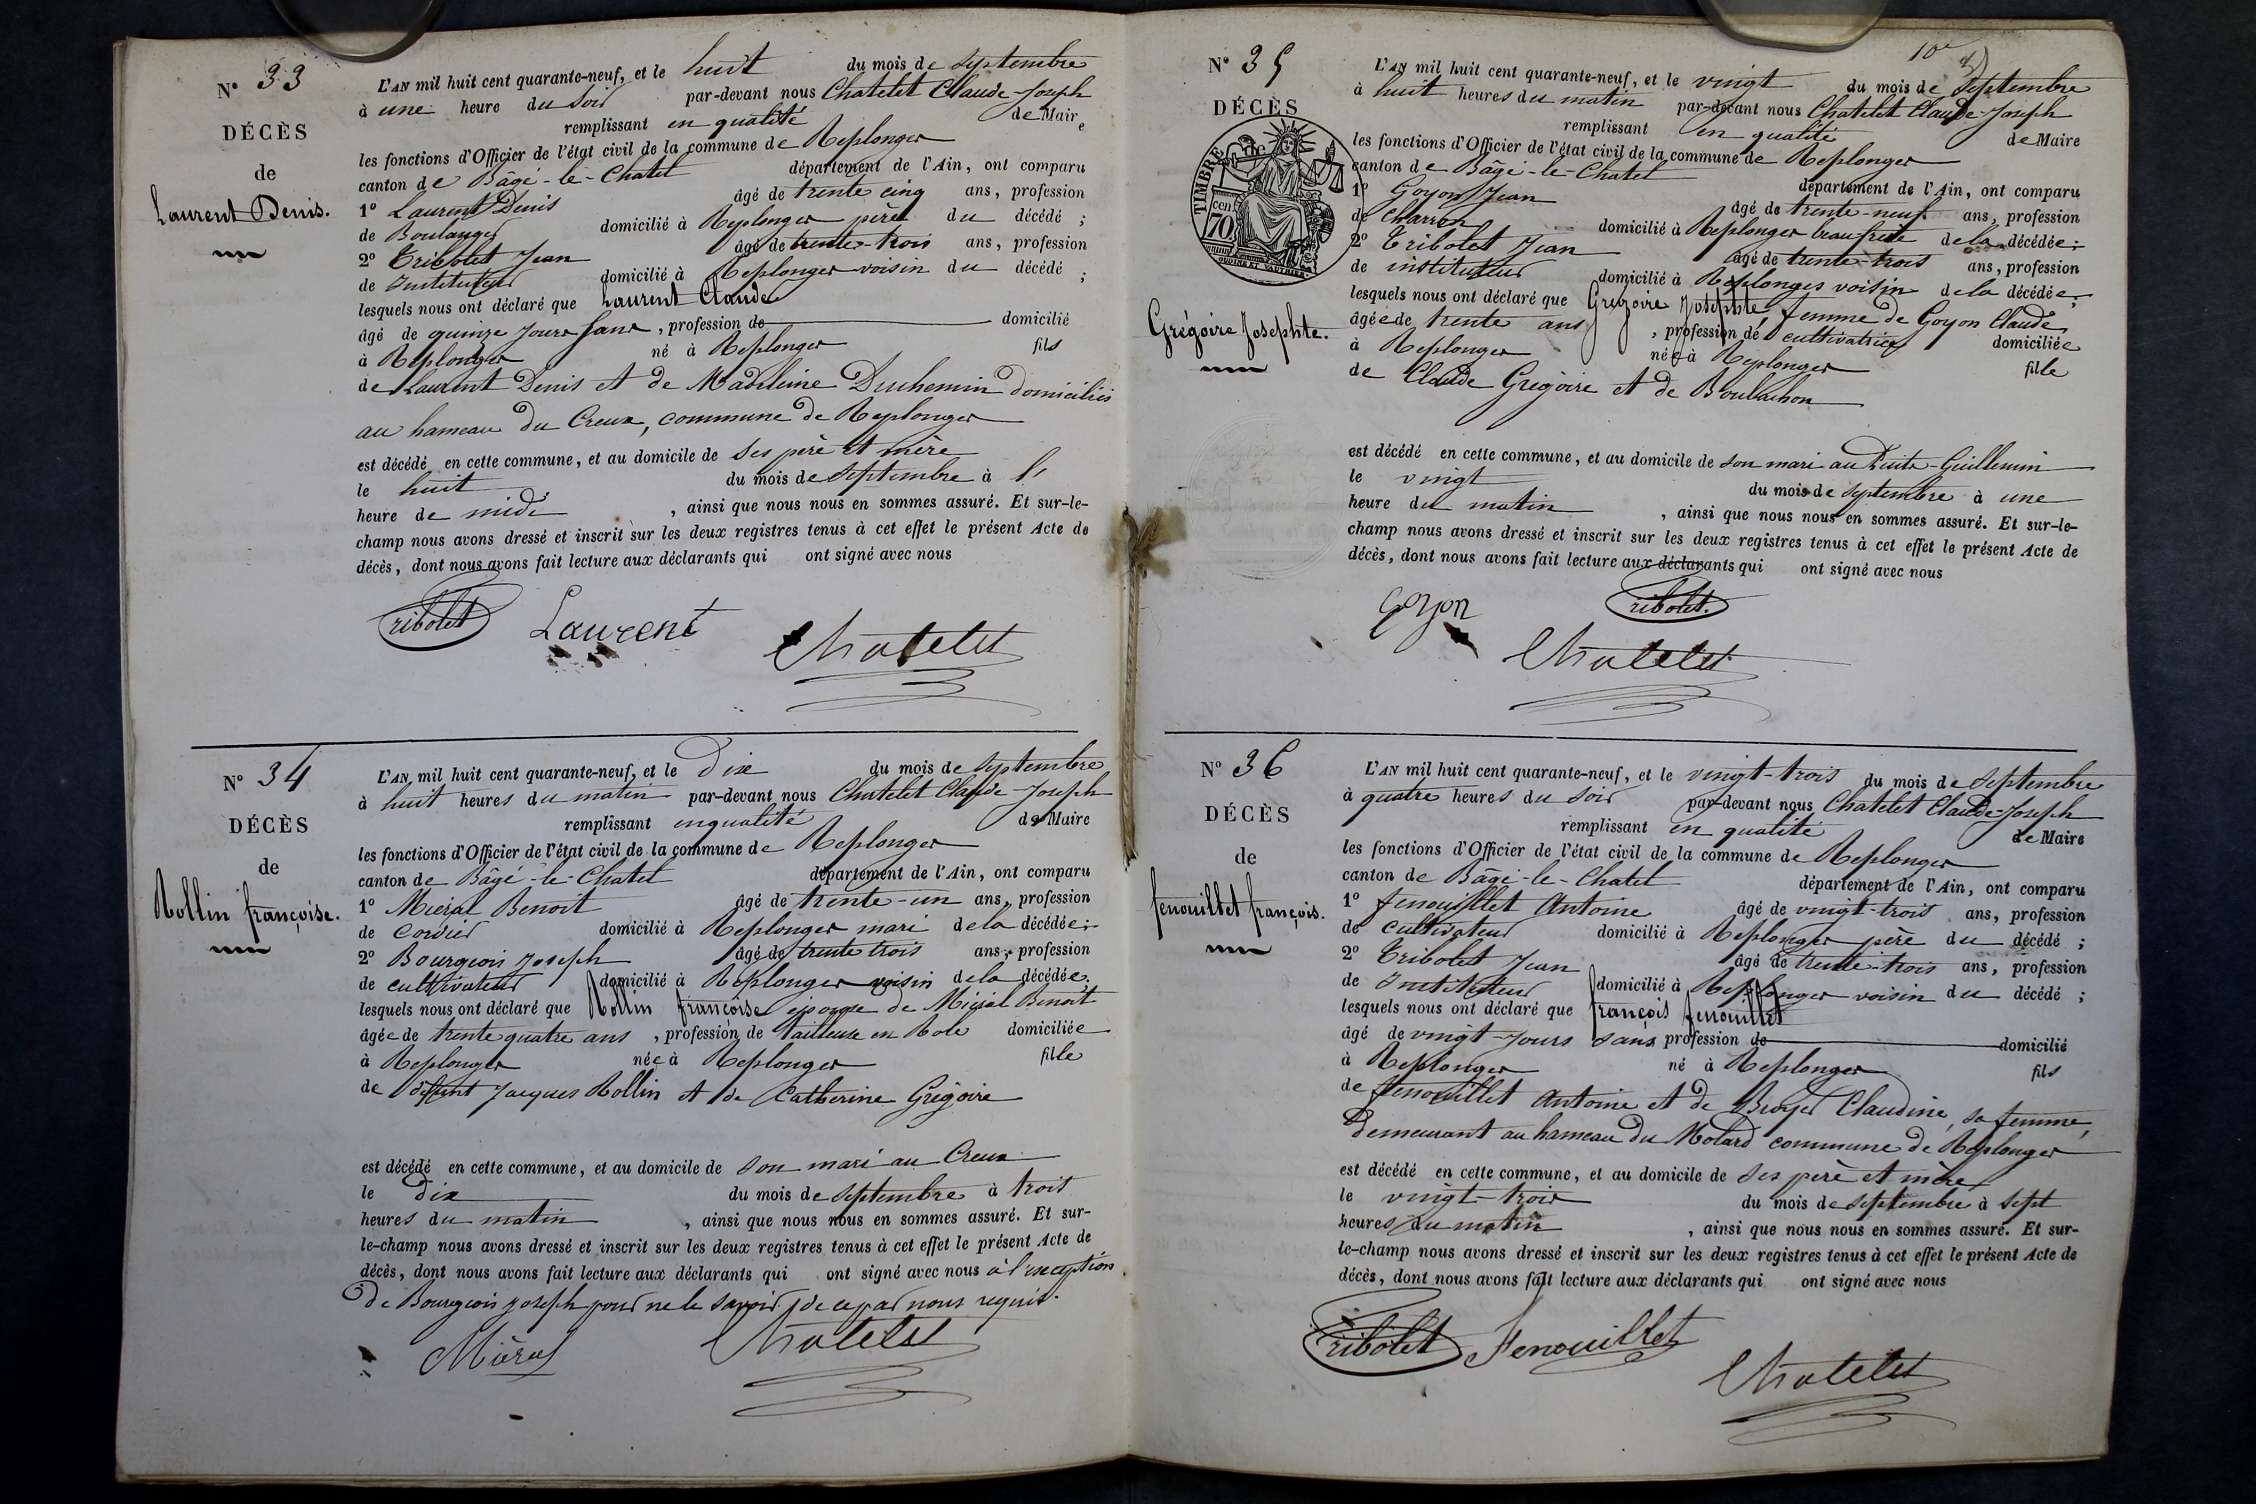 N° 33
DÉCÈS
de
Laurent Denis.
L'AN mil huit cent quarante-neuf, et le huit du mois de septembre
à une heure du soir par-devant nous Chatelet Claude-Joseph
remplissant en qualité de Maire
les fonctions d'Officier de l'état civil de la commune de Replonges
canton de Bâgé-le-Chatel département de l'Ain, ont comparu
1° Laurent Denis âgé de trente cinq ans, profession
de Boulanger domicilié à Replonges père du décédé ;
2° Tribolet Jean âgé de trente-trois ans, profession
de Instituteur domicilié à Replonges voisin du décédé ;
lesquels nous ont déclaré que Laurent Claude
âgé de quinze jours sans, profession de domicilié
à Replonges né à Replonges fils
de Laurent Denis et de Madeleine Duchemin domiciliés
au hameau du Creux, commune de Replonges
est décédé en cette commune, et au domicile de ses père et mère
le huit du mois de septembre à l'
heure de midi, ainsi que nous nous en sommes assuré. Et sur-le-
champ nous avons dressé et inscrit sur les deux registres tenus à cet effet le présent Acte de
décès, dont nous avons fait lecture aux déclarants qui ont signé avec nous
Tribolet Laurent Chatelet
N° 34
DÉCÈS
de
Rollin françoise.
L'AN mil huit cent quarante-neuf, et le Dix du mois de septembre
à huit heures du matin par-devant nous Chatelet Claude-Joseph
remplissant en qualité de Maire
les fonctions d'Officier de l'état civil de la commune de Replonges
canton de Bâgé-le-Chatel département de l'Ain, ont comparu
1° Miéral Benoit âgé de trente-un ans, profession
de cordier domicilié à Replonges mari de la décédée ;
2° Bourgeois Joseph âgé de trente trois ans, profession
de cultivateur domicilié à Replonges voisin de la décédée ;
lesquels nous ont déclaré que Rollin françoise épouse de Miéral Benoit
âgée de trente quatre ans, profession de tailleuse en Robe domiciliée
à Replonges née à Replonges fille
de défunt Jacques Rollin et de Catherine Grégoire
est décédé en cette commune, et au domicile de son mari au Creux
le dix du mois de septembre à trois
heures du matin, ainsi que nous nous en sommes assuré. Et sur-
le-champ nous avons dressé et inscrit sur les deux registres tenus à cet effet le présent Acte de
décès, dont nous avons fait lecture aux déclarants qui ont signé avec nous à l'exception
de Bourgeois Joseph pour ne le savoir, de ce par nous requis.
Miéral Chatelet
10e
N° 35
DÉCÈS
de
TIMBRE
70 cen
OUDINE ET VAUTHIER.
Grégoire Josephte.
L'AN mil huit cent quarante-neuf, et le vingt du mois de septembre
à huit heures du matin par-devant nous Chatelet Claude-Joseph
remplissant en qualité de Maire
les fonctions d'Officier de l'état civil de la commune de Replonges
canton de Bâgé-le-Chatel département de l'Ain, ont comparu
1° Goyon Jean âgé de trente-neuf ans, profession
de Charron domicilié à Replonges beau-frère de la décédée ;
2° Tribolet Jean âgé de trente-trois ans, profession
de instituteur domicilié à Replonges voisin de la décédée ;
lesquels nous ont déclaré que Grégoire Josephte femme de Goyon Claude
âgée de trente ans, profession de cultivatrice domiciliée
à Replonges née à Replonges fille
de Claude Grégoire et de Boulachon
est décédé en cette commune, et au domicile de son mari au Puits-Guillemin
le vingt du mois de septembre à une
heure du matin, ainsi que nous nous en sommes assuré. Et sur-le-
champ nous avons dressé et inscrit sur les deux registres tenus à cet effet le présent Acte de
décès, dont nous avons fait lecture aux déclarants qui ont signé avec nous
Goyon Tribolet.
Chatelet
N° 36
DÉCÈS
de
fenouillet françois.
L'AN mil huit cent quarante-neuf, et le vingt-trois du mois de septembre
à quatre heures du soir par-devant nous Chatelet Claude-Joseph
remplissant en qualité de Maire
les fonctions d'Officier de l'état civil de la commune de Replonges
canton de Bâgé-le-Chatel département de l'Ain, ont comparu
1° fenouillet Antoine âgé de vingt-trois ans, profession
de cultivateur domicilié à Replonges père du décédé ;
2° Tribolet Jean âgé de trente-trois ans, profession
de Instituteur domicilié à Replonges voisin du décédé ;
lesquels nous ont déclaré que françois fenouillet
âgé de vingt-jours sans profession de domicilié
à Replonges né à Replonges fils
de fenouillet Antoine et de Broyer Claudine, sa femme,
demeurant au hameau du Molard commune de Replonges
est décédé en cette commune, et au domicile de ses père et mère
le vingt-trois du mois de septembre à sept
heures du matin, ainsi que nous nous en sommes assuré. Et sur-
le-champ nous avons dressé et inscrit sur les deux registres tenus à cet effet le présent Acte de
décès, dont nous avons fait lecture aux déclarants qui ont signé avec nous
Tribolet Fenouillet
Chatelet